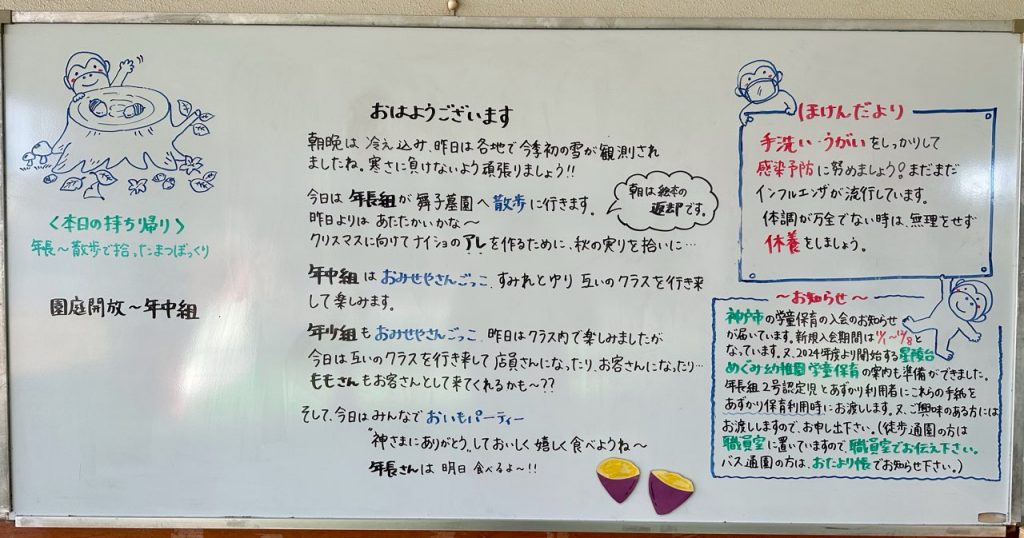 〈本日の持ち帰り〉
年長～散歩で拾ったまつぼっくり
園庭開放～年中組
おはようございます
朝晩は冷え込み、昨日は各地で今季初の雪が観測され
ましたね。寒さに負けないよう頑張りましょう!!
今日は 年長組が 舞子墓園へ 散歩に行きます。
昨日よりは あたたかいかな～
クリスマスに向けてナイショのアレを作るために、秋の実りを拾いに…
朝は絵本の
返却です。
年中組は おみせやさんごっこ、すみれとゆり 互いのクラスを行き来
して楽しみます。
年少組も おみせやさんごっこ、昨日はクラス内で楽しみましたが
今日は互いのクラスを行き来して店員さんになったり、お客さんになったり…
ももさんもお客さんとして来てくれるかも～??
そして、今日はみんなで おいもパーティー
"神さまにありがとう"しておいしく嬉しく食べようね～
年長さんは 明日 食べるよ～!!
ほけんだより
手洗い・うがいをしっかりして
感染予防に努めましょう!まだまだ
インフルエンザが流行しています。
体調が万全でない時は、無理をせず
休養をしましょう。
～お知らせ～
神戸市の学童保育の入会のお知らせ
が届いています。新規入会期間は
なっています。又、2024年度より開始する星陵台
めぐみ幼稚園学童保育の案内も準備ができました。
年長組2号認定児とあずかり利用者にこれらの手紙を
あずかり保育利用時にお渡しします。又、ご興味のある方には
お渡ししますので、お申し出下さい。(徒歩通園の方は
職員室に置いていますので、職員室でお伝え下さい。
バス通園の方は、おたより帳でお知らせ下さい。)